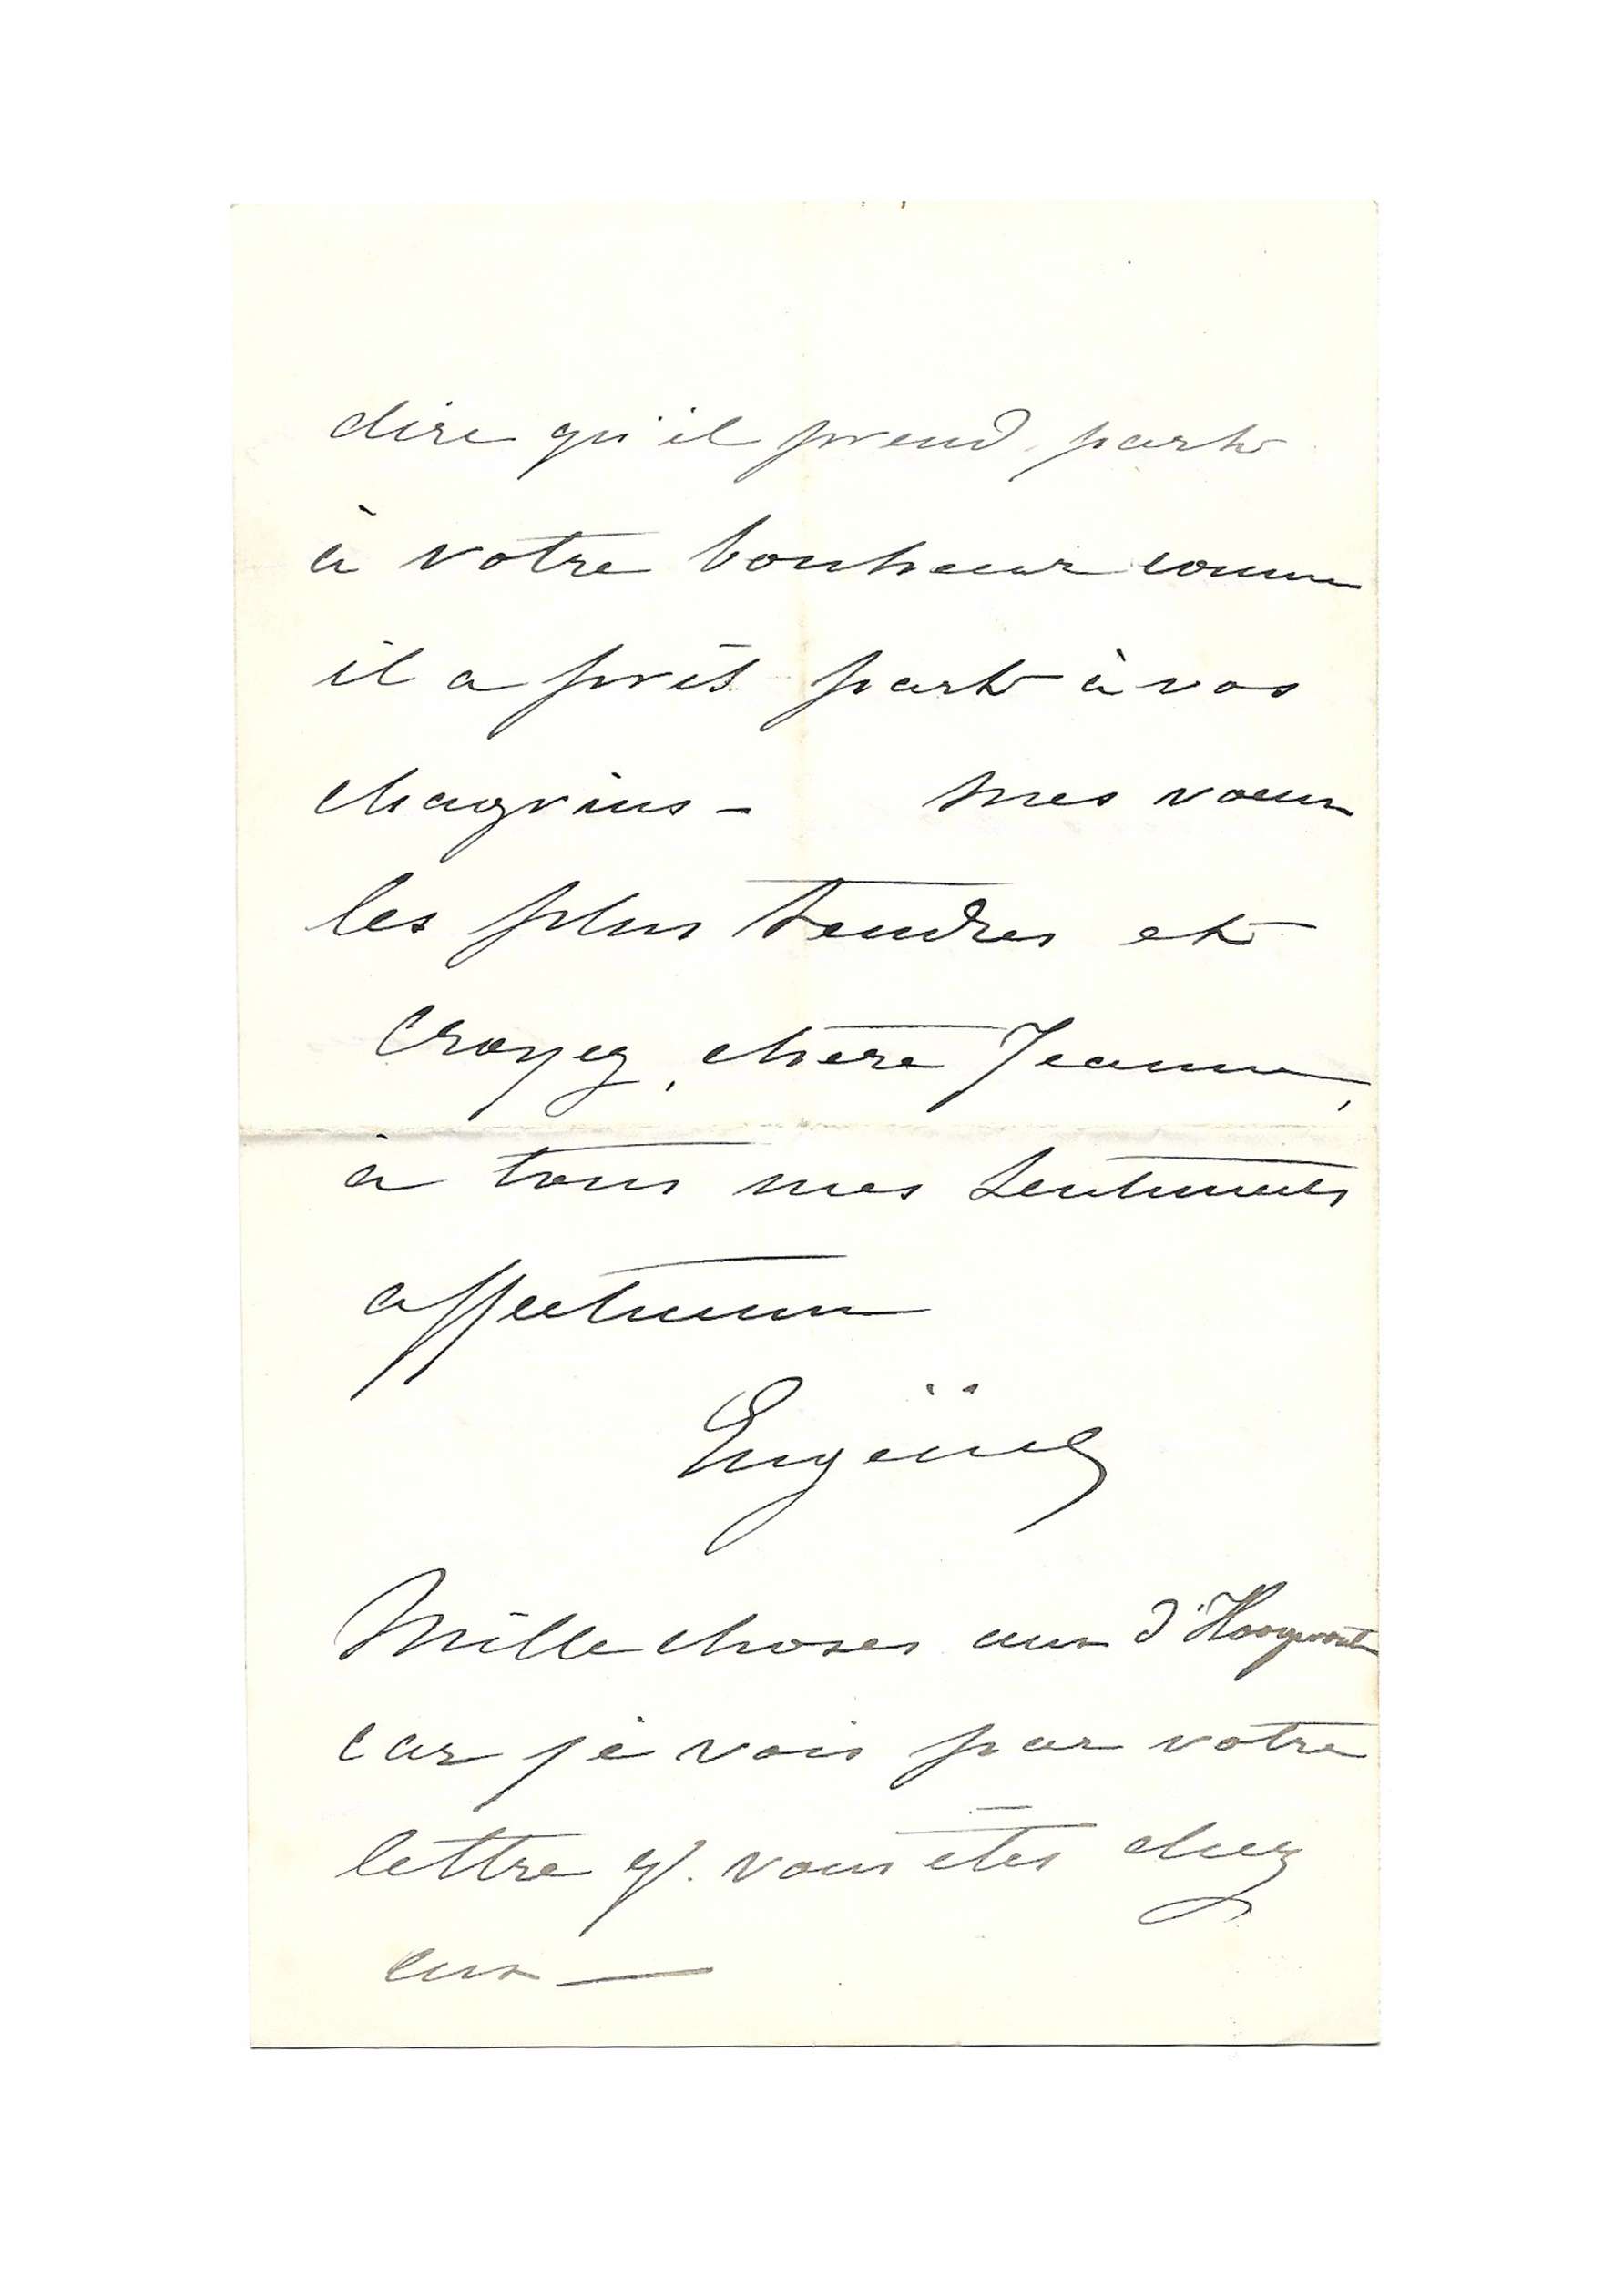 dire qu'il prend part
à votre bonheur comme
il a prit part à vos
chagrins - mes vœux
les plus tendres et
croyez, chère Jeanne,
à tous mes sentiments
affectueux
Eugénie
Mille choses aux d'Hoogvorst
car je vois par votre
lettre q. vous êtes chez
eux —